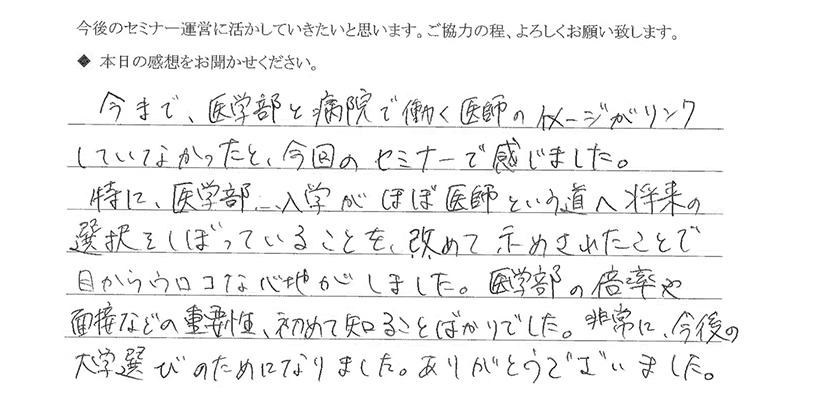 今後のセミナー運営に活かしていきたいと思います。ご協力の程、よろしくお願い致します。
◆ 本日の感想をお聞かせください。
今まで、医学部と病院で働く医師のイメージがリンク
していてなかったと、今回のセミナーで感じました。
特に、医学部に入学がほぼ医師という道へ将来の
選択をしぼっていることを、改めて示めされたことで
目からウロコな心地がしました。医学部の倍率や
面接などの重要性、初めて知ることばかりでした。非常に、今後の
大学選びのためになりました。ありがとうございました。